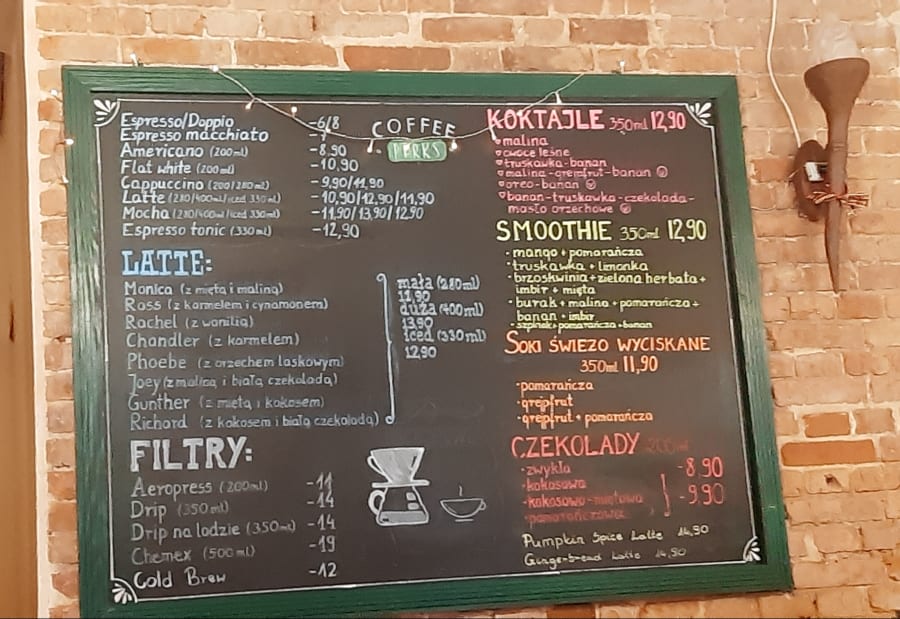 COFFEE
PERKS
Espresso/Doppio -6/8
Espresso macchiato -7
Americano (200ml) -8.90
Flat white (200ml) -10,90
Cappuccino (200/280ml) -9,90/11,90
Latte (280/400ml/iced 330ml) -10,90/12,90/11,90
Mocha (280/400ml/iced 330ml) -11,90/13,90/12,90
Espresso tonic (330ml) -12,90
LATTE:
Monica (z miętą i maliną)
Ross (z karmelem i cynamonem)
Rachel (z wanilią)
Chandler (z karmelem)
Phoebe (z orzechem laskowym)
Joey (z maliną i białą czekoladą)
Gunther (z miętą i kokosem)
Richard (z kokosem i białą czekoladą)
mała (280ml)
11,90
duża (400ml)
13,90
iced (330ml)
12,90
FILTRY:
Aeropress (200ml) -11
Drip (350ml) -14
Drip na lodzie (350ml) -14
Chemex (500ml) -19
Cold Brew -12
KOKTAJLE 350ml 12,90
malina
owoce leśne
truskawka-banan
malina-grejpfrut-banan
oreo-banan
banan-truskawka-czekolada-
masło orzechowe
SMOOTHIE 350ml 12,90
mango + pomarańcza
truskawka + limonka
brzoskwinia + zielona herbata +
imbir + mięta
burak + malina + pomarańcza +
banan + imbir
szpinak + pomarańcza + banan
SOKI ŚWIEŻO WYCISKANE
350ml 11,90
pomarańcza
grejpfrut
grejpfrut + pomarańcza
CZEKOLADY 200ml
zwykła -8,90
kokosowa
kokosowo-miętowa -9,90
pomarańczowa
Pumpkin Spice Latte 14,90
Gingerbread Latte 14,90